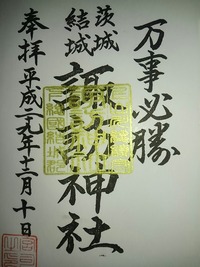 万事必勝
茨城
結城
諏訪神社
奉拝平成二九年十二月十日